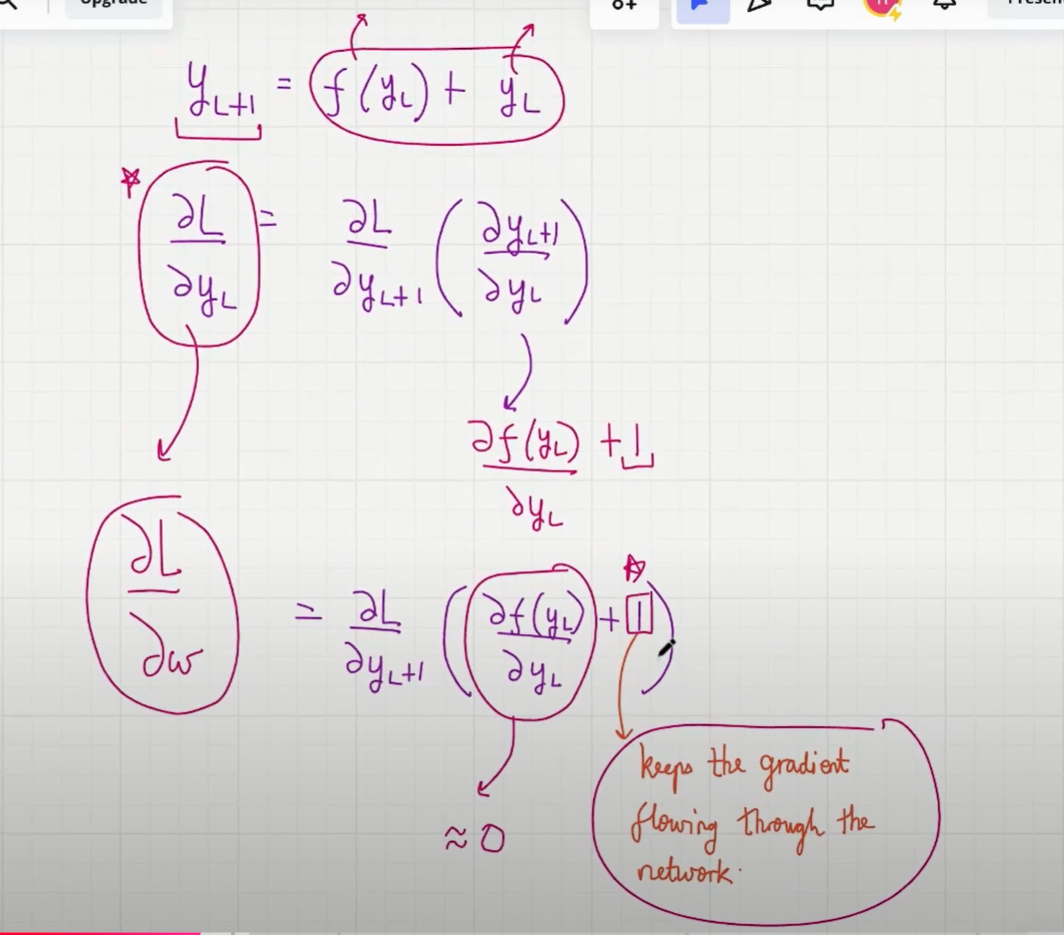 Upgrade
y_{L+1} = f(y_L) + y_L
∂L/∂y_L = ∂L/∂y_{L+1} (∂y_{L+1}/∂y_L)
∂f(y_L)/∂y_L + 1
∂L/∂w = ∂L/∂y_{L+1} (∂f(y_L)/∂y_L + 1)
≈ 0
keeps the gradient
flowing through the
network.